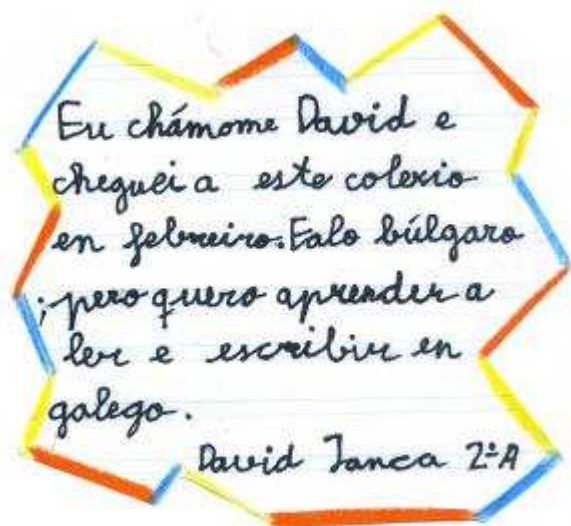 Eu chámome David e
cheguei a este colexio
en febreiro. Falo búlgaro
; pero quero aprender a
ler e escribir en
galego.
David Janca 2ºA